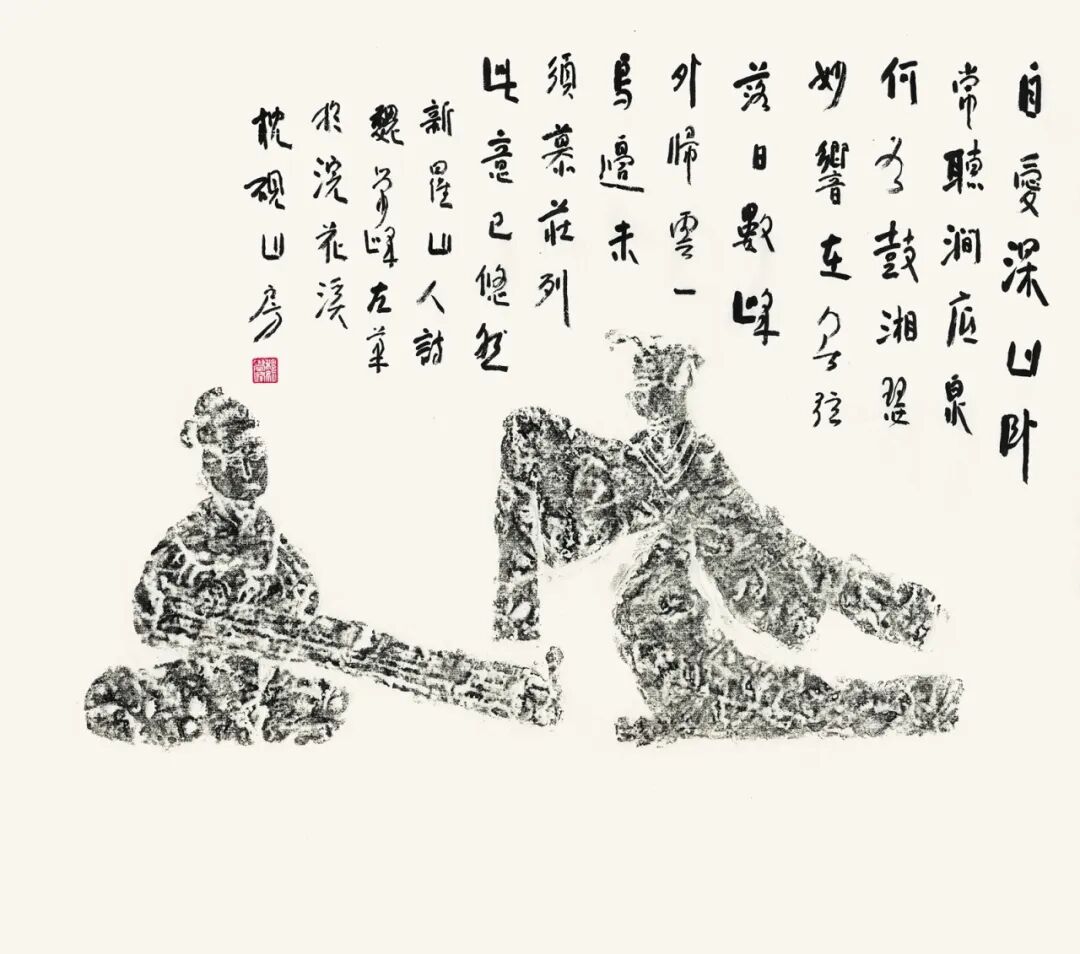 自愛深山卧
常聽澗底泉
何為鼓湘瑟
妙響在無弦
落日數峰
外歸雲一
鳥邊未
須慕莊列
此意已悠然
新羅山人詩
魏學峰左筆
於浣花溪
枕硯山房